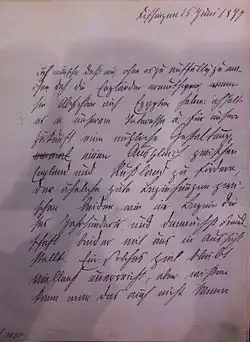 Kissingen 15 Juni 1877
Ich wünsche daß wir ohne es zu auffällig zu ma-
chen doch die Engländer ermuthigen, wenn
sie Absichten auf Egypten haben: ich halte
es in unserem Interesse u für unsere
Zukunft eine nützliche Gestaltung,
einen Ausgleich zwischen
England und Rußland zu fördern,
der ähnliche gute Beziehungen zwi-
schen beiden wie im Beginn die-
ses Jahrhunderts und demnächst Freund-
schaft beider mit uns in Aussicht
stellt. Ein solches Ziel bleibt
vielleicht unerreicht, aber wissen
kann man das auch nicht. Wenn